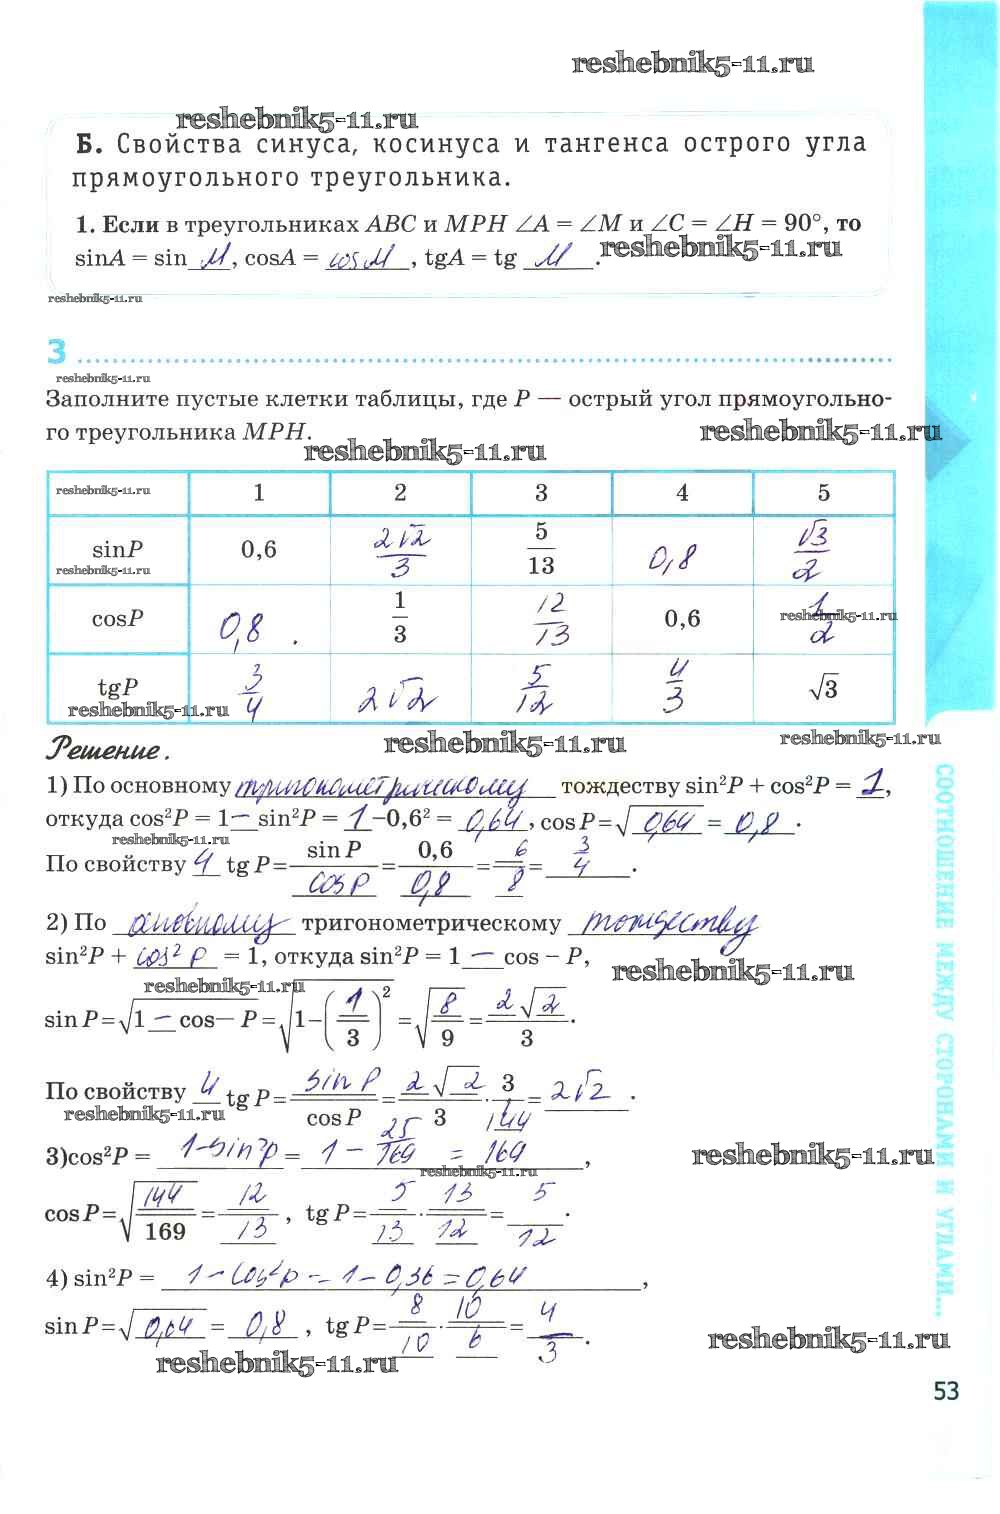 reshebnik5-11.ru
reshebnik5-11.ru
Б. Свойства синуса, косинуса и тангенса острого угла
прямоугольного треугольника.
1. Если в треугольниках ABC и MPH ∠A = ∠M и ∠C = ∠H = 90°, то
sinA = sin M, cosA = cosM, tgA = tg M. reshebnik5-11.ru
reshebnik5-11.ru
3
reshebnik5-11.ru
Заполните пустые клетки таблицы, где P — острый угол прямоугольно-
го треугольника MPH. reshebnik5-11.ru reshebnik5-11.ru
reshebnik5-11.ru 1 2 3 4 5
sinP 0,6 2√2/3 5/13 0,8 √3/2
reshebnik5-11.ru
cosP 0,8 1/3 12/13 0,6 1/2 reshebnik5-11.ru
tgP 3/4 2√2 5/12 4/3 √3
reshebnik5-11.ru
Решение. reshebnik5-11.ru reshebnik5-11.ru
1) По основному тригонометрическому тождеству sin²P + cos²P = 1,
откуда cos²P = 1 – sin²P = 1 –0,6² = 0,64, cosP=√0,64 = 0,8.
reshebnik5-11.ru
По свойству 4 tgP= sinP/cosP = 0,6/0,8 = 6/8 = 3/4.
2) По основному тригонометрическому тождеству
sin²P + cos²P = 1, откуда sin²P = 1 – cos – P,
reshebnik5-11.ru reshebnik5-11.ru
sinP=√1 – cos— P=√1–(1/3)² =√8/9 = 2√2/3.
По свойству 4 tgP= sinP/cosP = 2√2/3 · 3/1 = 2√2.
reshebnik5-11.ru
3)cos²P = 1-sin²P = 1 – 25/169 = 144/169,
reshebnik5-11.ru reshebnik5-11.ru
cosP=√144/169 = 12/13, tgP= 5/13 · 13/12 = 5/12.
4) sin²P = 1 – cos²P = 1 – 0,36 = 0,64,
sinP=√0,64 = 0,8, tgP= 8/10 · 10/6 = 4/3.
reshebnik5-11.ru reshebnik5-11.ru
СООТНОШЕНИЕ МЕЖДУ СТОРОНАМИ И УГЛАМИ...
53